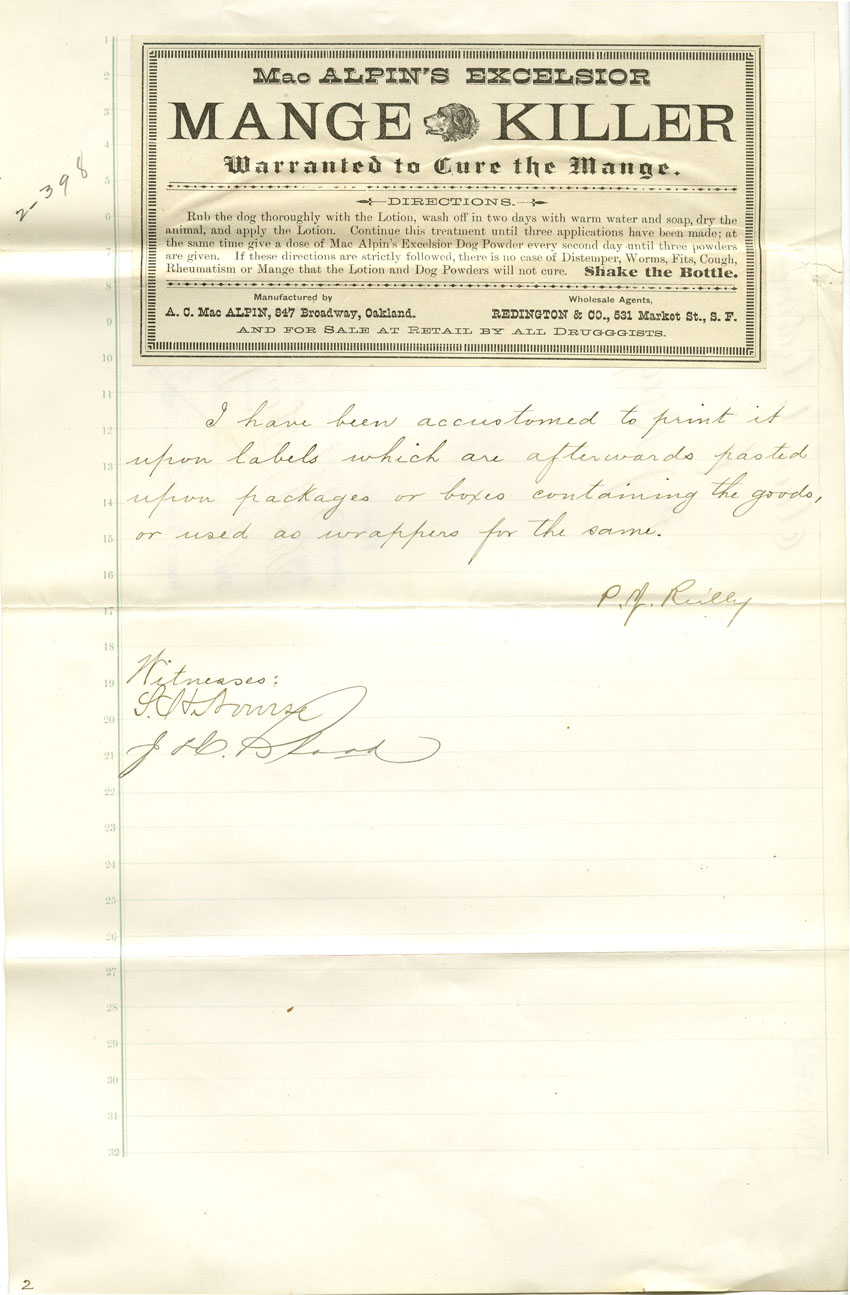 2-398
Mac ALPIN'S EXCELSIOR
MANGE KILLER
Warranted to Cure the Mange.
DIRECTIONS.
Rub the dog thoroughly with the Lotion, wash off in two days with warm water and soap, dry the
animal, and apply the Lotion. Continue this treatment until three applications have been made; at
the same time give a dose of Mac Alpin's Excelsior Dog Powder every second day until three powders
are given. If these directions are strictly followed, there is no case of Distemper, Worms, Fits, Cough,
Rheumatism or Mange that the Lotion and Dog Powders will not cure. Shake the Bottle.
Manufactured by
A. C. Mac ALPIN, 847 Broadway, Oakland.
Wholesale Agents,
REDINGTON & CO., 531 Market St., S. F.
AND FOR SALE AT RETAIL BY ALL DRUGGGISTS.
I have been accustomed to print it
upon labels which are afterwards pasted
upon packages or boxes containing the goods,
or used as wrappers for the same.
P. J. Reilly
Witnesses:
S. H. Nourse
J. H. Blood
1
2
3
4
5
6
7
8
9
10
11
12
13
14
15
16
17
18
19
20
21
22
23
24
25
26
27
28
29
30
31
32
2